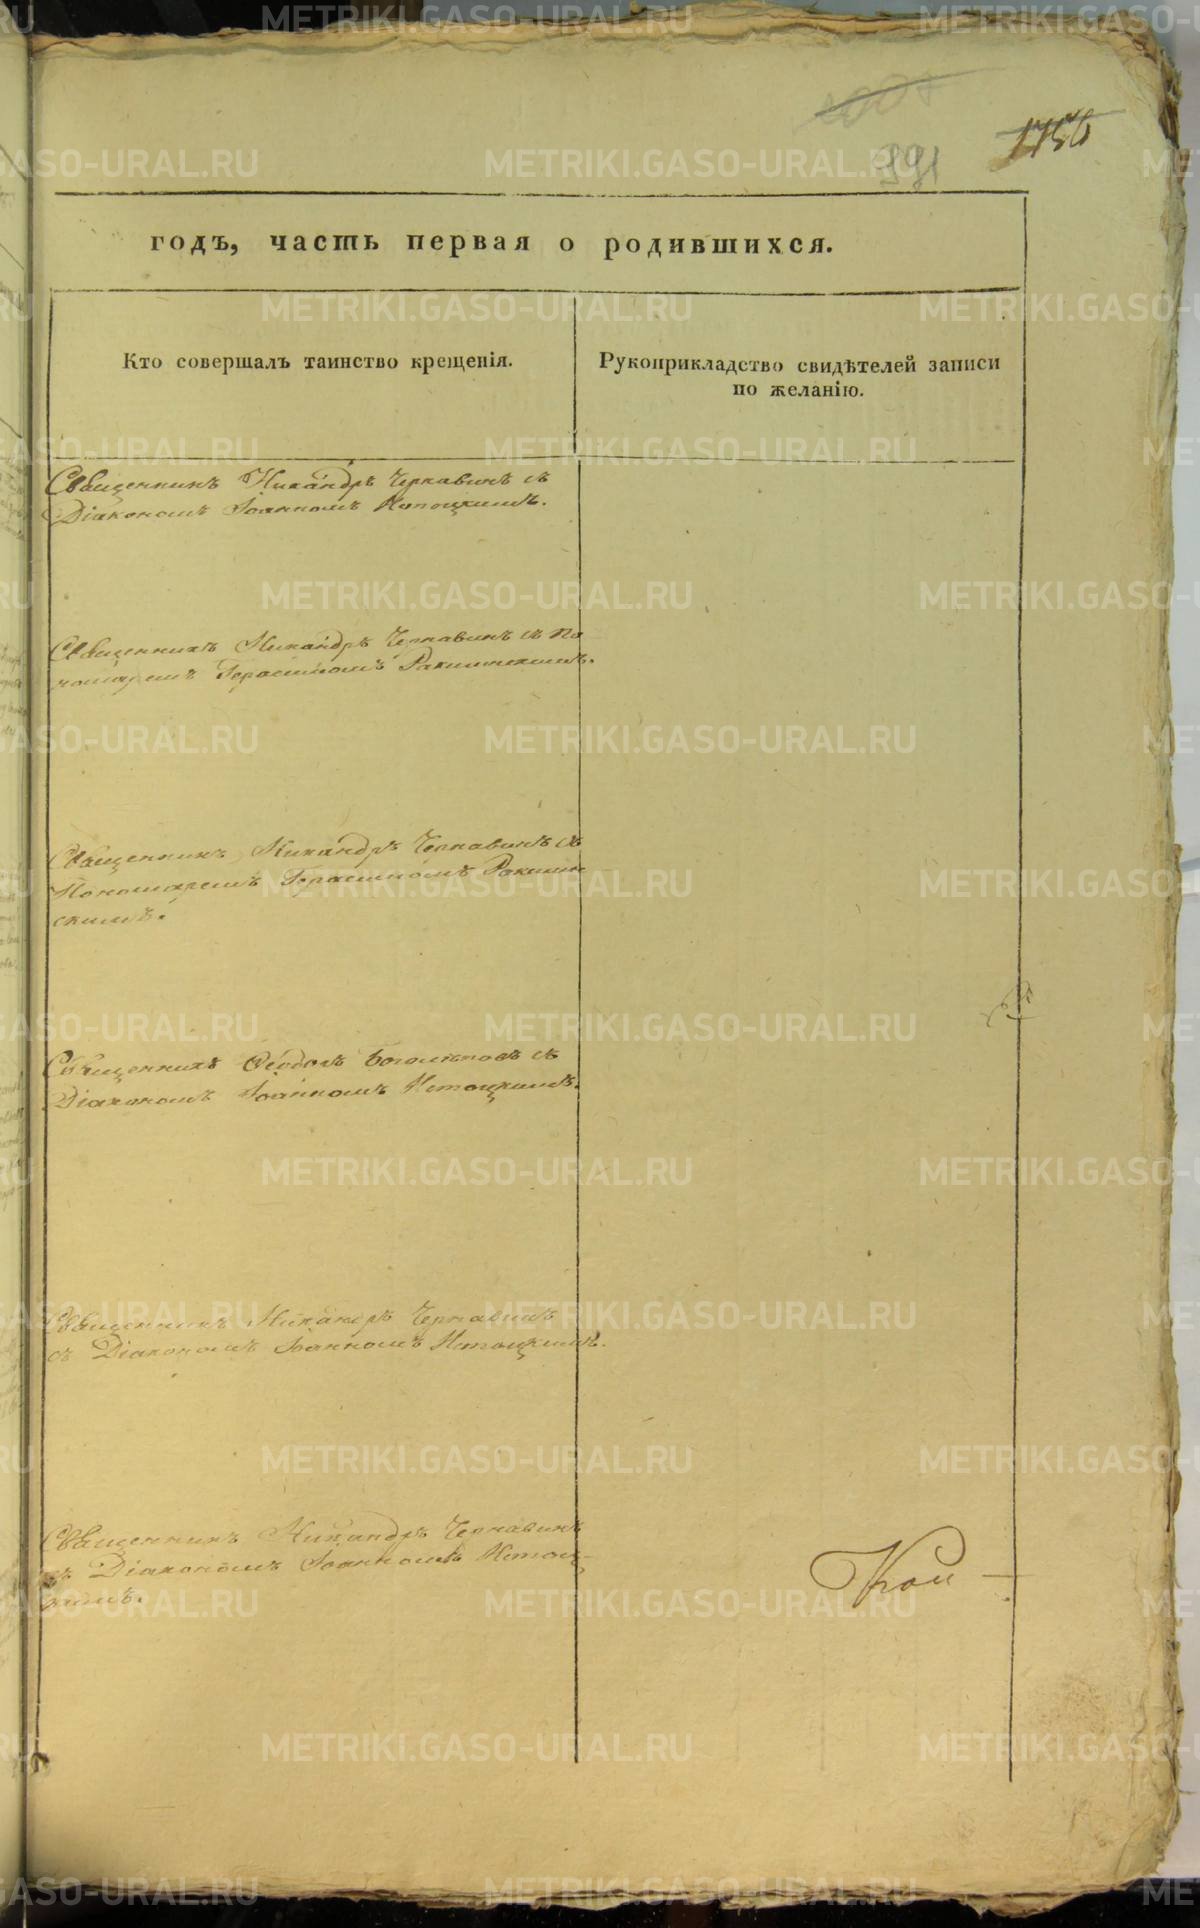 991
1756
годъ, часть первая о родившихся.
Кто совершалъ таинство крещенія.
Рукоприкладство свидѣтелей записи
по желанію.
Священникъ Никандръ Чернавинъ съ
Діакономъ Іоанномъ Истоцкимъ.
Священникъ Никандръ Чернавинъ съ По
номаремъ Герасимомъ Ракшинскимъ.
Священникъ Никандръ Чернавинъ съ
Пономаремъ Герасимомъ Ракшин
скимъ.
Священникъ Ѳеодоръ Боголѣповъ съ
Діакономъ Іоанномъ Истоцкимъ.
Священникъ Никандръ Чернавинъ
съ Діакономъ Іоанномъ Истоцкимъ.
Священникъ Никандръ Чернавинъ
съ Діакономъ Іоанномъ Истоц-
кимъ.
METRIKI.GASO-URAL.RU